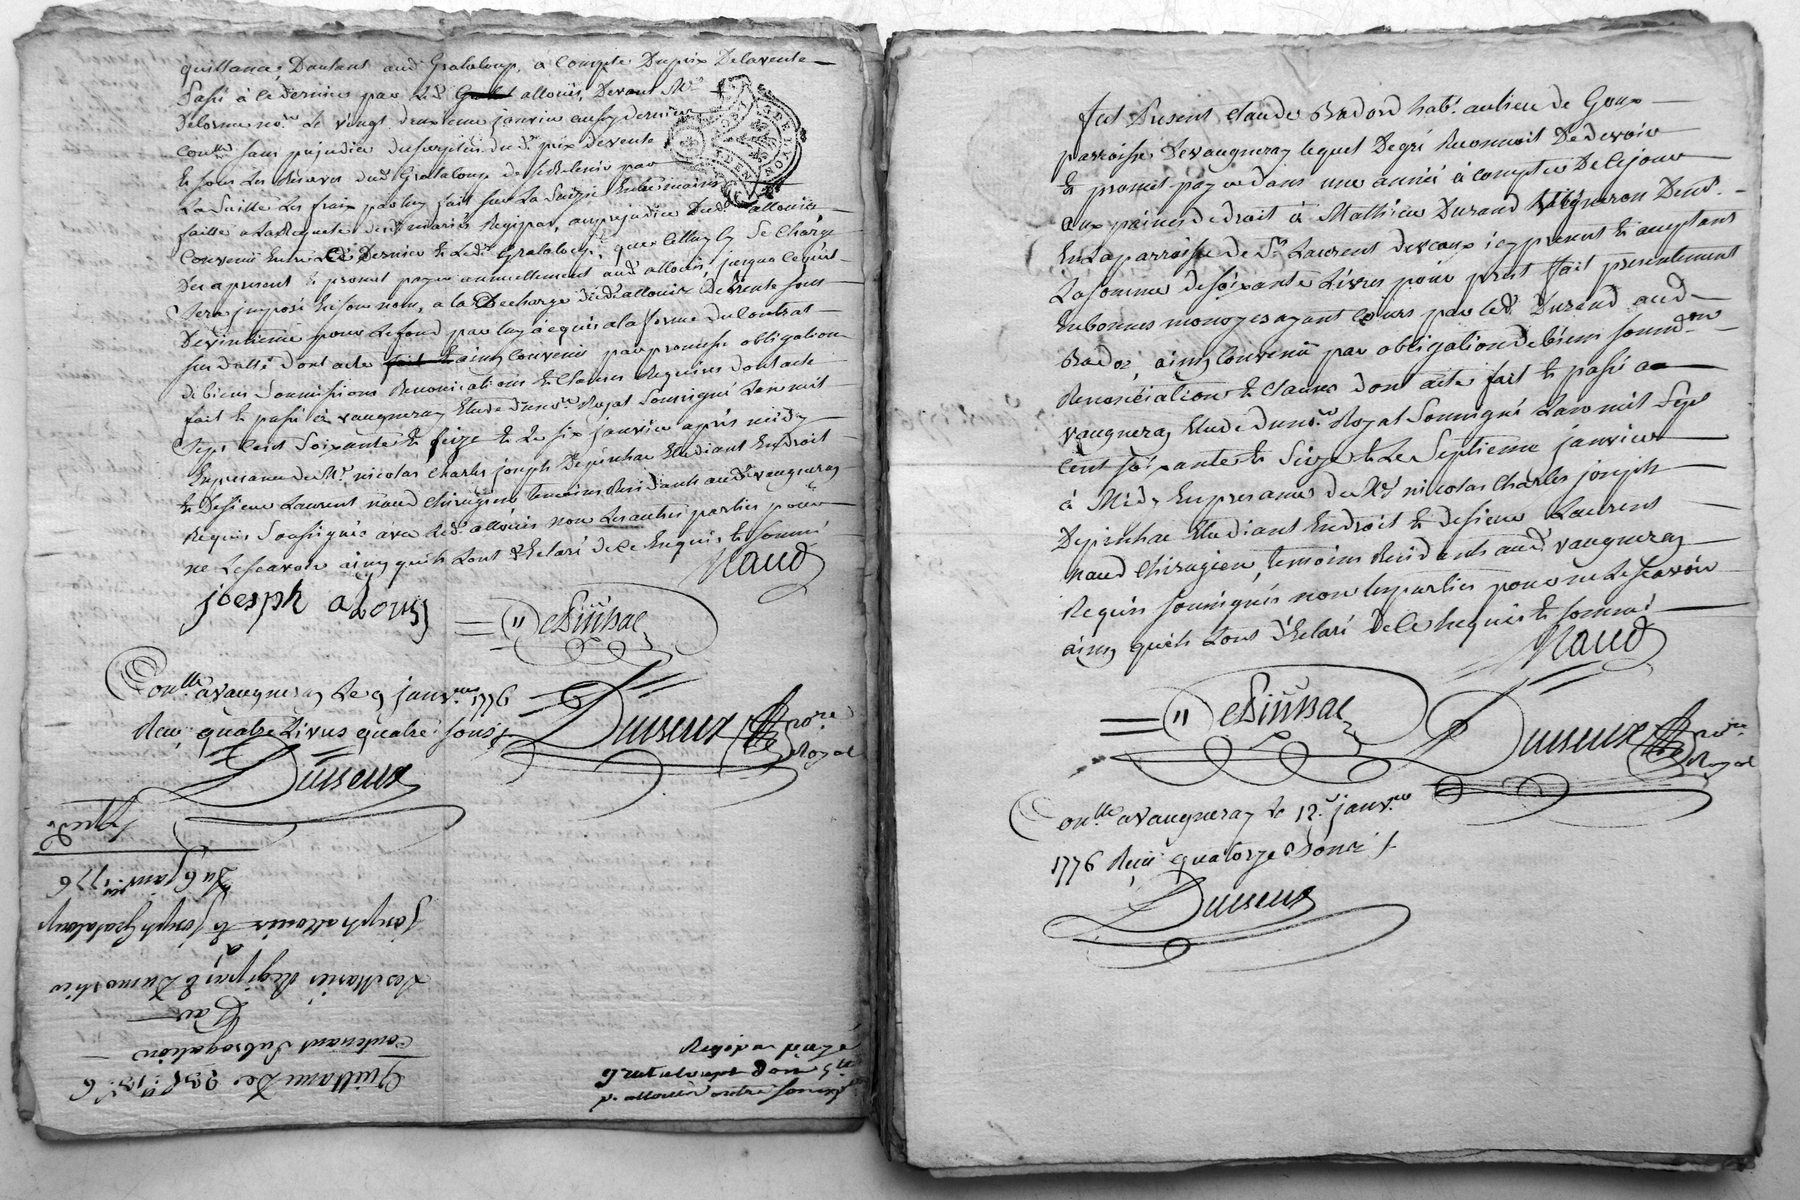 quittance, Dautant aud Grataloup, à Compte Du prix Delavente
Passé à ce dernier par led allouis, Devant Me
Delorme nore Le vingt deuxieme janvier aussy dernier
Conllé sans prejudice du surplus du d. prix devente
et sous Les Reserves dud Grataloup de se Retenir par
La Suitte Les frais par luy fait sur La Saizie Entre mains
faitte a La Requete desd mariés Regipas, au prejudice Dud. allouis
Convenu Entre Ce Dernier et Led. Grataloup, que Cettuy cy Se Charge
Des a present et promet payer annuellement aud allouis, jusques ce qu'il
Sera imposé En son nom, a la Decharge dud allouis de trente sous
De vingtieme pour Le fond par luy acquis a la forme du Contrat
sus datté dont acte ainsy Convenu par promesse obligation
de biens Soumissions Renonciations et Clauses Requises dont acte
fait et passé à vaugneray Etude du nore Royal Soussigné Lan mil
Sept Cent Soixante et seize et Le six janvier après midy
En presence de Mr nicolas Charles joseph Depinhac Etudiant En droit
et De Sieur Laurent naud Chirurgien temoins Residants aud vaugneray
Requis Soussignés avec Led. allouis non Les autres parties pour
ne Le scavoir ainsy qu'ils L'ont Déclaré de ce Enquis et sommé
Naud
joesph alouis
Depinhac
Conllé a vaugneray Le 9 janver 1776
Reçu quatre Livres quatre sous
Duiseux nore
Royal
Duiseux
Exped.
Du 6 janver 1776
Joseph allouis et Joseph Grataloup
à
Les Mariés Regipas et Dumortier
Par
Contenant Subrogation
Quittance De
fut Present Claude Bador habt. au lieu de Goux
parroisse De vaugneray lequel De gré Reconnoit De devoir
et promet payer dans une année à compter De Ce jour
aux paines de droit à Mathieu Durand Vigneron Demt.
En La parroisse de St Laurent de vaux icy present et acceptant
La somme de soixante Livres pour pret fait presentement
En bonnes monoyes ayant Cours par led. Durand aud
Bador, ainsy Convenu par obligation de biens soumon
Renonciation et Clauses dont acte fait et passé a
vaugneray Etude du nore Royal Soussigné Lan mil Sept
Cent soixante et Seize et Le Septieme janvier
à Midy En presence de Mr nicolas Charles joseph
Depinhac Etudiant En droit et de sieur Laurent
naud Chirugien, temoins Residants aud. vaugneray
Requis soussignés non Les parties pour ne Le scavoir
ainsy qu'ils L'ont Déclaré De Ce Enquis et sommé
Naud
Depinhac
Duiseux nore
Royal
Conllé a vaugneray le 12. janver
1776 Reçu quatorze sous
Duiseux